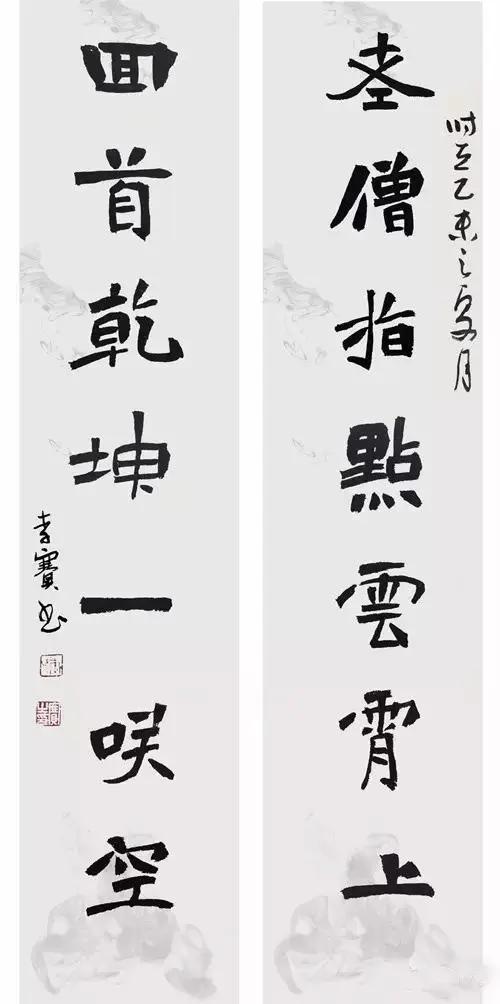 時在乙未之夏月
老僧指點雲霄上
回首乾坤一咲空
孝賓书